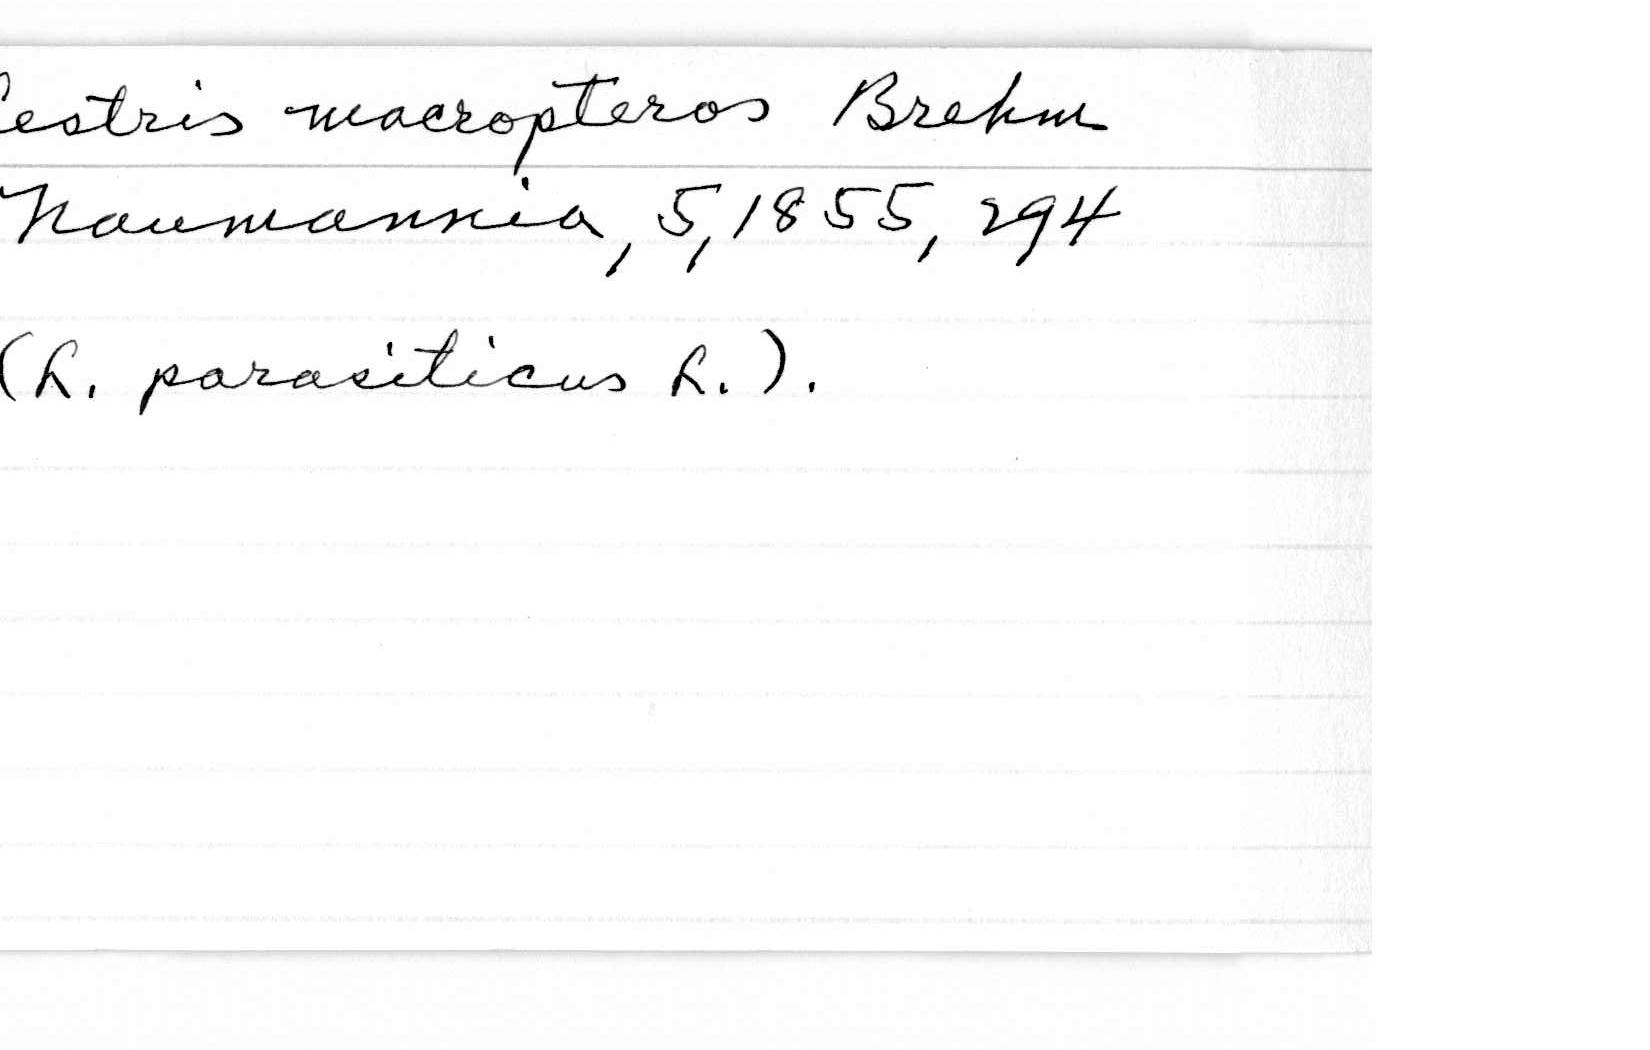 Lestris macropteros Brehm
Naumannia, 5, 1855, 294
(L. parasiticus L.).